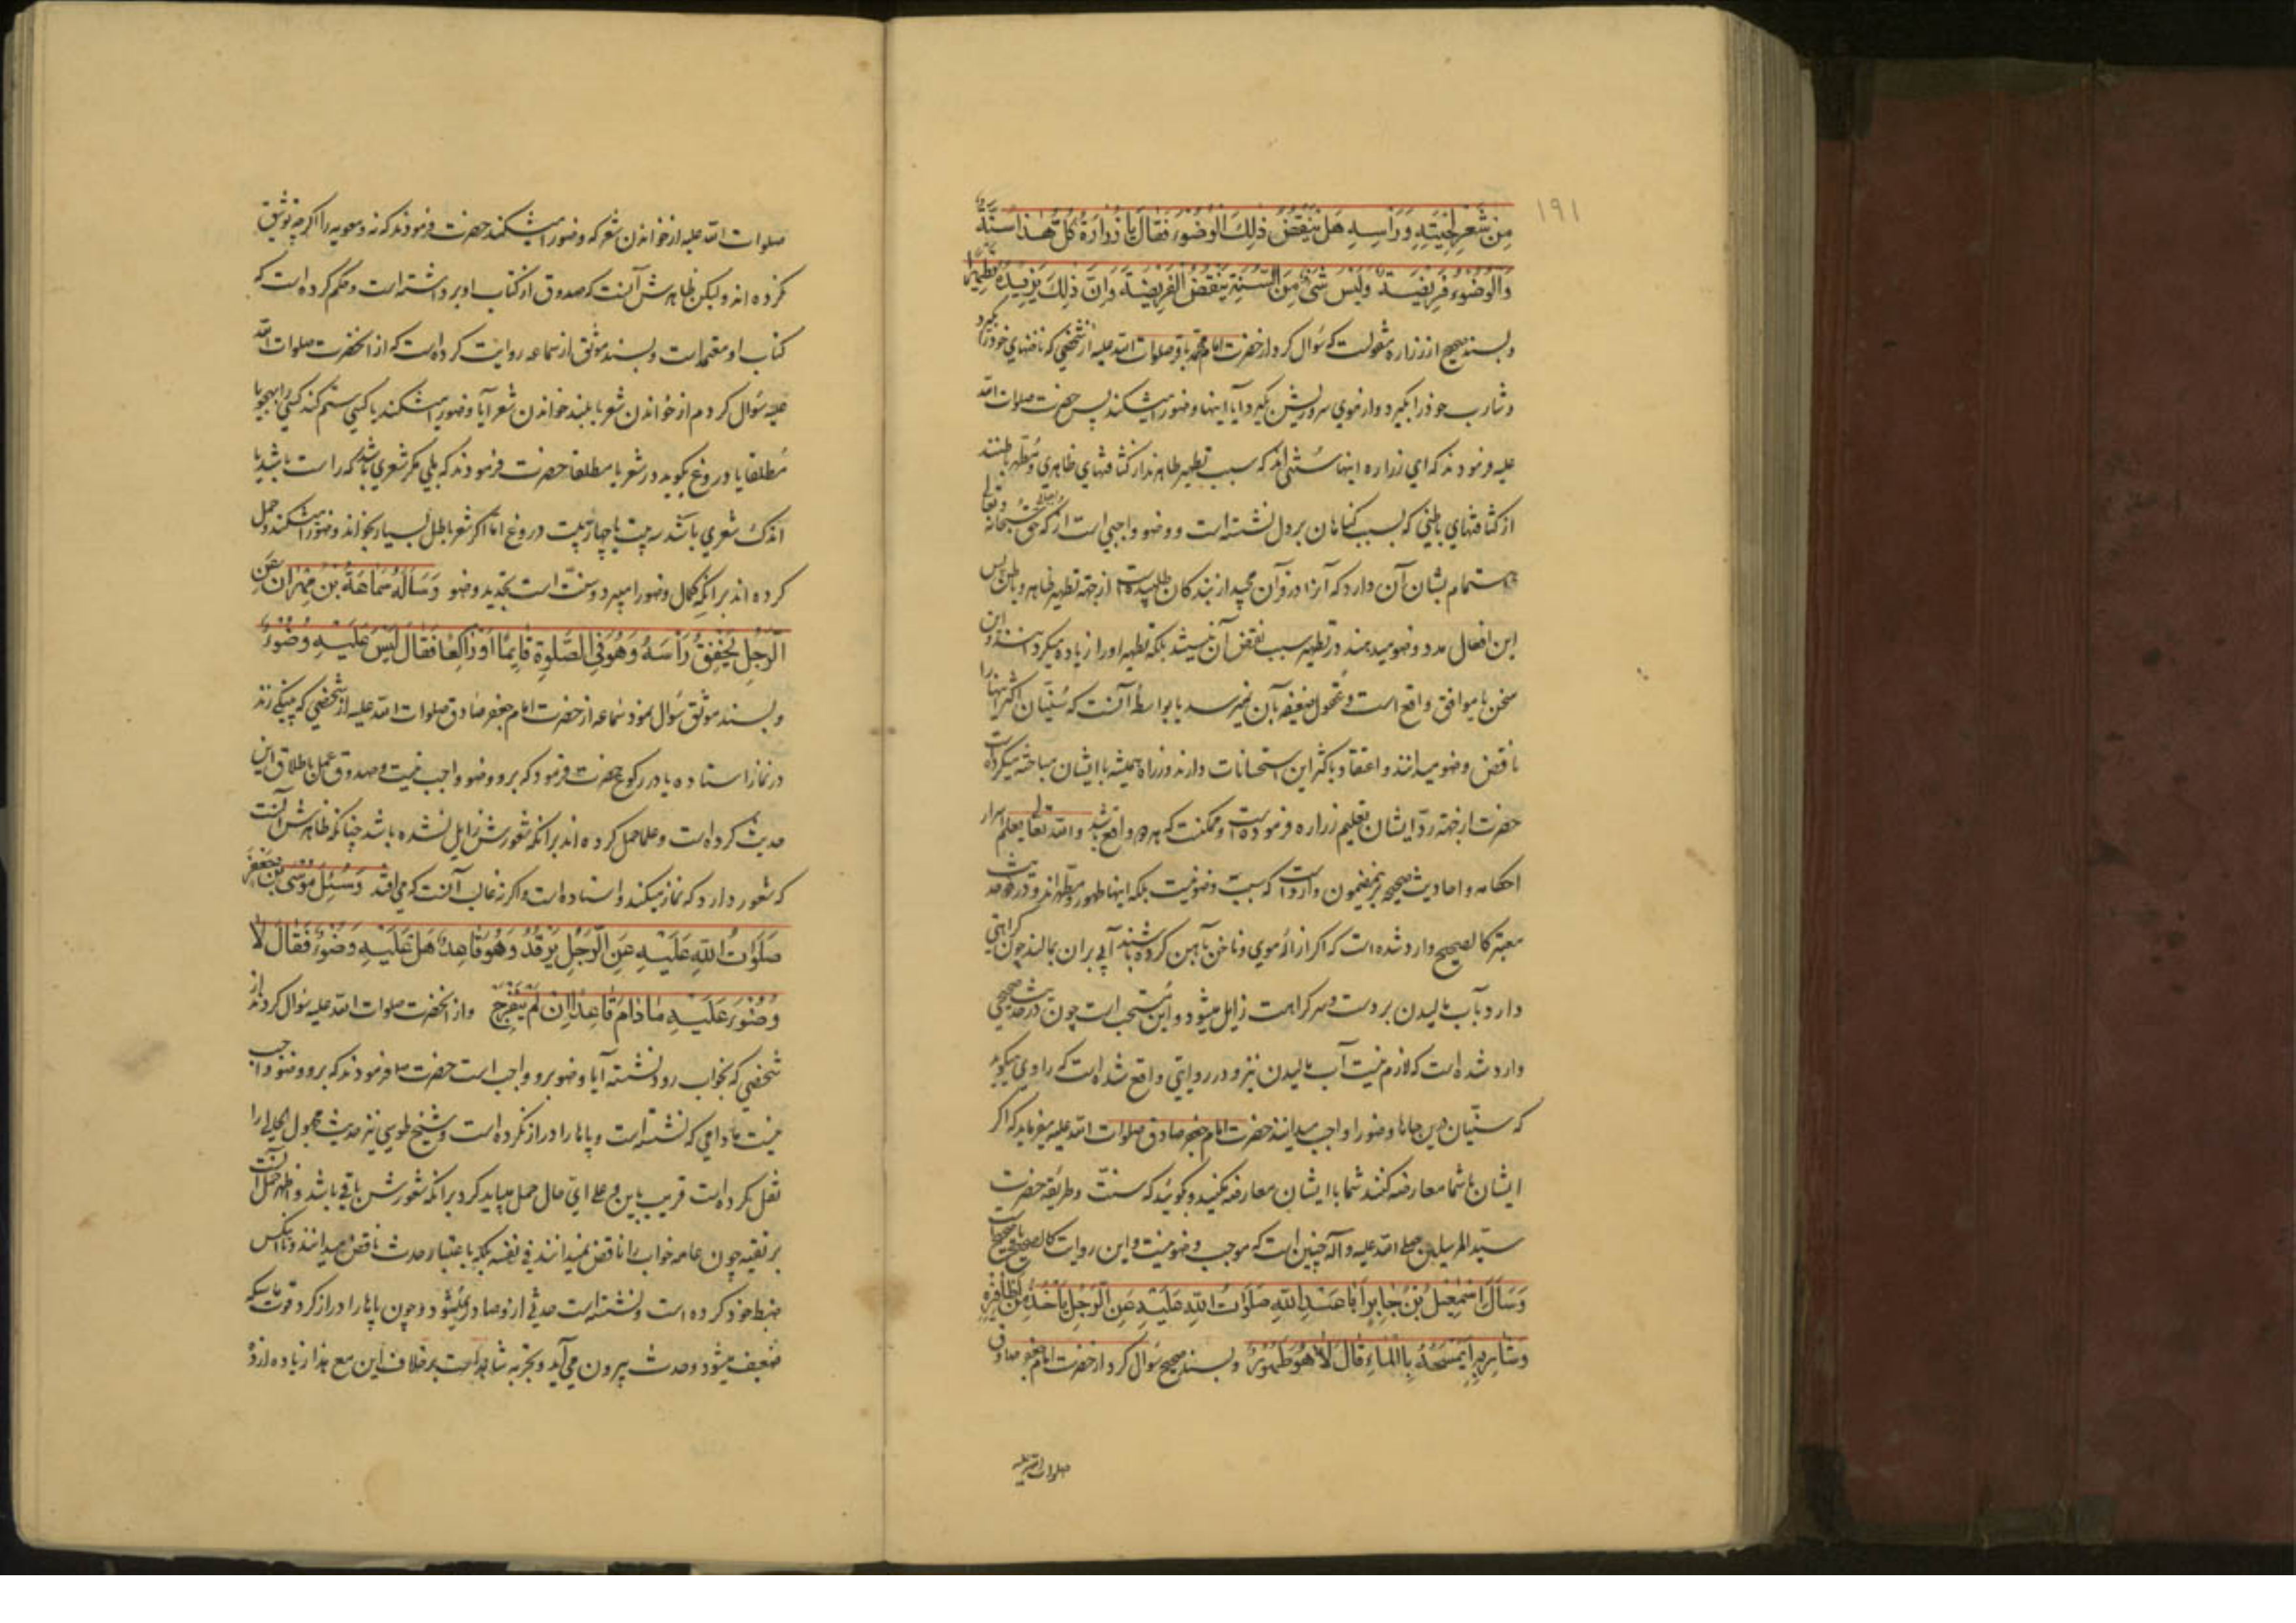 ۱۹۱
مِن شَعرِ لِحیَتِهِ وَرَأسِهِ هَل یَنقُضُ ذلِكَ الوُضُوءَ فَقالَ یا زُرارَةُ کُلُّ هذا سُنَّةٌ
وَالوُضُوءُ فَرِیضَةٌ وَلَیسَ شَیءٌ مِنَ السُّنَّةِ یَنقُضُ الفَرِیضَةَ وَاِنَّ ذلِكَ یَزِیدُهُ تَطهِیرًا
و بسند صحیح از زراره منقولست که سؤال کرد از حضرت امام محمد باقر صلوات الله علیه از شخصی که ناخنهای خود را بکیرد
و شارب خود را بکیرد و از موی سر و ریش بکیرد آیا اینها وضو را میشکند پس حضرت صلوات الله
علیه فرمودند که ای زراره اینها سنتی‌اند که سبب تطهیر ظاهرند از کثافتهای ظاهری و مطهر باطنند
از کثافتهای باطنی که بسبب کناهان بر دل نشسته است و وضو واجبی است از که حق سبحانه و تعالی
اهتمام بشان آن دارد که آنرا در قرآن مجید از بندکان طلبیده است از جهة تطهیر ظاهر و باطن پس
این افعال مدد وضو میدهند در تطهیر سبب نقض آن نمیشد بلکه تطهیر او را زیاده میکردهند و این
سخن یا موافق واقع است و عقول ضعیفه بآن نمیرسد یا بواسطهٔ آنست که سنیان اکثر اینها را
ناقض وضو میدانند و اعتقاد باکثر این استحسانات دارند و زراره همیشه با ایشان مباحثه میکرده است
حضرت از جهة رد ایشان تعلیم زراره فرموده است و ممکنست که هر دو واقع باشد و الله تعالی یعلم اسرار
احکامه و احادیث صحیحه برینمضمون وارد است که سبب وضو نیست بلکه اینها طهور و مطهراند و در دو حدیث
معتبر کالصحیح وارد شده است که اکر ازالهٔ موی و ناخن بآهن کرده باشند آبی بر آن بمالند چون کراهتی
دارد و بآب مالیدن بر دست و سر کراهت زایل میشود و این مستحب است چون در حدیث صحیحی
وارد شده است که لازم نیست آب مالیدن نیز و در روایتی واقع شده است که راوی میکوید
که سنیان درین جاها وضو را واجب میدانند حضرت امام جعفر صادق صلوات الله علیه میفرماید که اکر
ایشان با شما معارضه کنند شما با ایشان معارضه نکنید و بکوئید که سنت و طریقهٔ حضرت
سید المرسلین صلی الله علیه و آله چنین است که موجب وضو نیست و این روایت کالصحیح یا صحیح است
وَسَأَلَ اِسمعِیلُ بنُ جابِرٍ اَبا عَبدِ اللهِ صَلَواتُ اللهِ عَلَیهِ عَنِ الرَّجُلِ یَأخُذُ مِن اَظافِیرِهِ
وَشارِبِهِ اَیَمسَحُهُ بِالماءِ قالَ لا هُوَ طَهُورٌ و بسند صحیح سؤال کرد از حضرت امام جعفر صادق
صلوات الله علیه
صلوات الله علیه از خواندن شعر که وضو را میشکند حضرت فرمودند که نه و معویه را اکر چه توثیق
نکرده‌اند ولیکن ظاهرش آنست که صدوق از کتاب او برداشته است و حکم کرده است که
کتاب او معتمد است و بسند موثق از سماعه روایت کرده است که از آنحضرت صلوات الله
علیه سؤال کردم از خواندن شعر یا بلند خواندن شعر آیا وضو را میشکند یا کسی ستم کند کسی را بهجو یا
مطلقا یا دروغ بکوید در شعر یا مطلقا حضرت فرمودند که بلی مکر شعری باشد که راست باشد یا
اندک شعری باشد سه بیت یا چهار بیت دروغ اما اکر شعر باطل بسیار بخواند وضو را میشکند و حمل
کرده‌اند بر آنکه کمال وضو را میبرد و سنت است تجدید وضو وَسَأَلَهُ سَماعَةُ بنُ مِهرانَ عَنِ
الرَّجُلِ یَخفِقُ رَأسَهُ وَهُوَ فِی الصَّلوةِ قائِمًا اَو راکِعًا فَقالَ لَیسَ عَلَیهِ وُضُوءٌ
و بسند موثق سؤال نمود سماعه از حضرت امام جعفر صادق صلوات الله علیه از شخصی که پینکی زند
در نماز استاده یا در رکوع حضرت فرمود که برو وضو واجب نیست و صدوق عمل باطلاق این
حدیث کرده است و علما حمل کرده‌اند بر آنکه شعورش زایل نشده باشد چنانکه ظاهرش آنست
که شعور دارد که نماز میکند و استاده است و اکر نه غالب آنست که می افتد وَسُئِلَ مُوسَی بنُ جَعفَرٍ
صَلَواتُ اللهِ عَلَیهِ عَنِ الرَّجُلِ یَرقُدُ وَهُوَ قاعِدٌ هَل عَلَیهِ وُضُوءٌ فَقالَ لا
وُضُوءَ عَلَیهِ مادامَ قاعِدًا اِن لَم یَنفَرِج و از آنحضرت صلوات الله علیه سؤال کردند از
شخصی که بخواب رود نشسته آیا وضو برو واجب است حضرت فرمودند که برو وضو واجب
نیست مادامی که نشسته است و پاها را دراز نکرده است و شیخ طوسی نیز حدیث مجهول الحالی را
نقل کرده است قریب باین و علی ای حال حمل میباید کرد بر آنکه شعورش باقی باشد و اظهر حمل آنست
بر تقیه چون عامه خواب را ناقض نمیدانند فی نفسه بلکه باعتبار حدث ناقض میدانند و تا آنکس
ضبط خود کرده است و نشسته است حدثی ازو صادر نمیشود و چون پاها را دراز کرد قوت ماسکه
ضعیف میشود و حدث بیرون می‌آید و تجربه شاهد است بر خلاف این مع هذا زیاده ازو